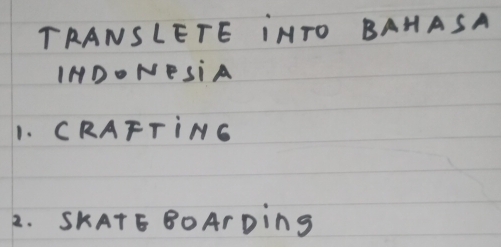 TRANSLETE iNTO BAHASA
INDONESiA
1. CRAFTiNG
2. SKATE BOArDing